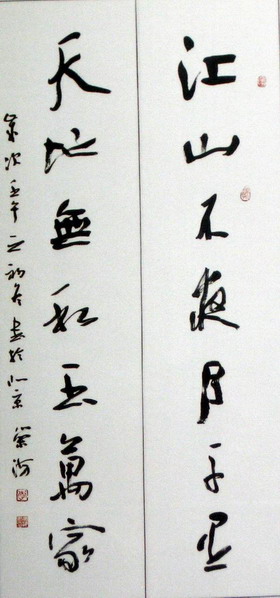 江山不夜月千里
天地無私玉萬家
歲次壬午之初 書於北京